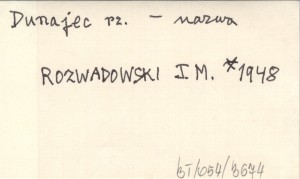 Dunajec rz. - nazwa
ROZWADOWSKI I M. *1948
BT/054/3674